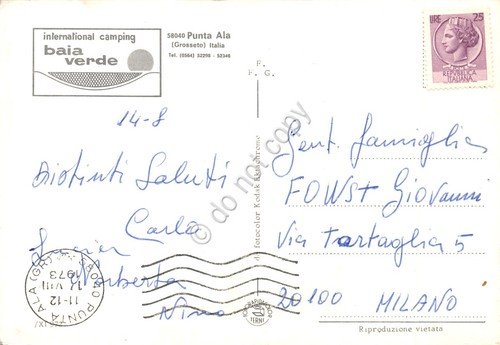 international camping
baia
verde
58040 Punta Ala
(Grosseto) Italia
Tel. (0564) 52298 - 52346
LIRE 25
REPUBBLICA
ITALIANA
F.
F. G.
14-8
Distinti Saluti
Carla
Norberta
Nino
58040 PUNTA ALA (GR)
11-12
14 VIII
1973
fotocolor Kodak Ektachrome
Gent. famiglia
FOWST Giovanni
Via Tartaglia 5
20100 MILANO
Riproduzione vietata
© do not copy